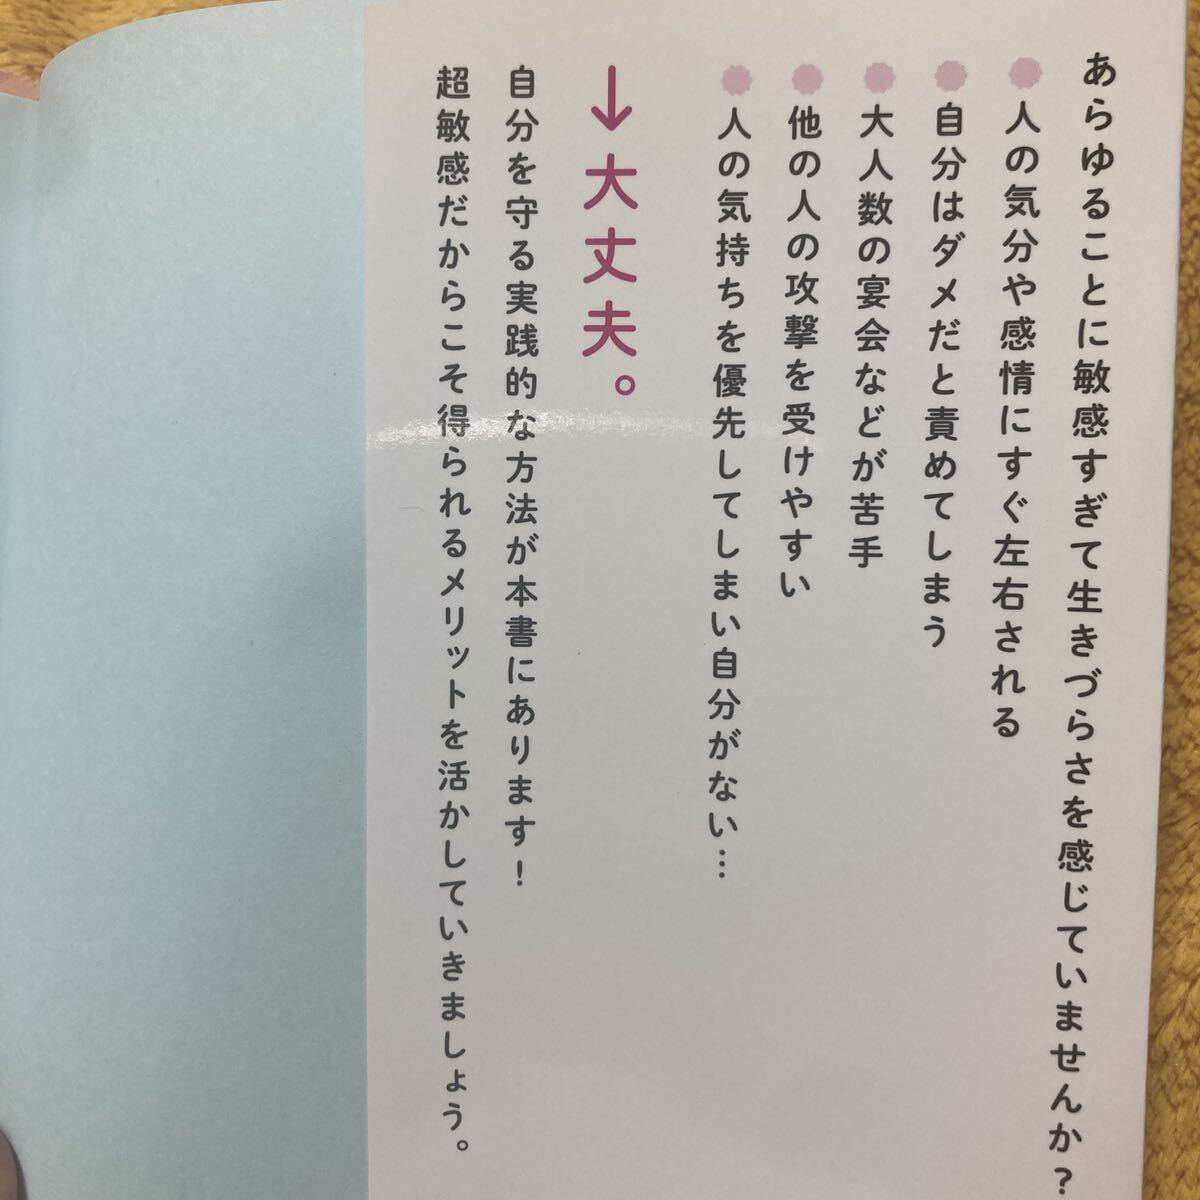 あらゆることに敏感すぎて生きづらさを感じていませんか?
人の気分や感情にすぐ左右される
自分はダメだと責めてしまう
大人数の宴会などが苦手
他の人の攻撃を受けやすい
人の気持ちを優先してしまい自分がない…
→大丈夫。
自分を守る実践的な方法が本書にあります!
超敏感だからこそ得られるメリットを活かしていきましょう。